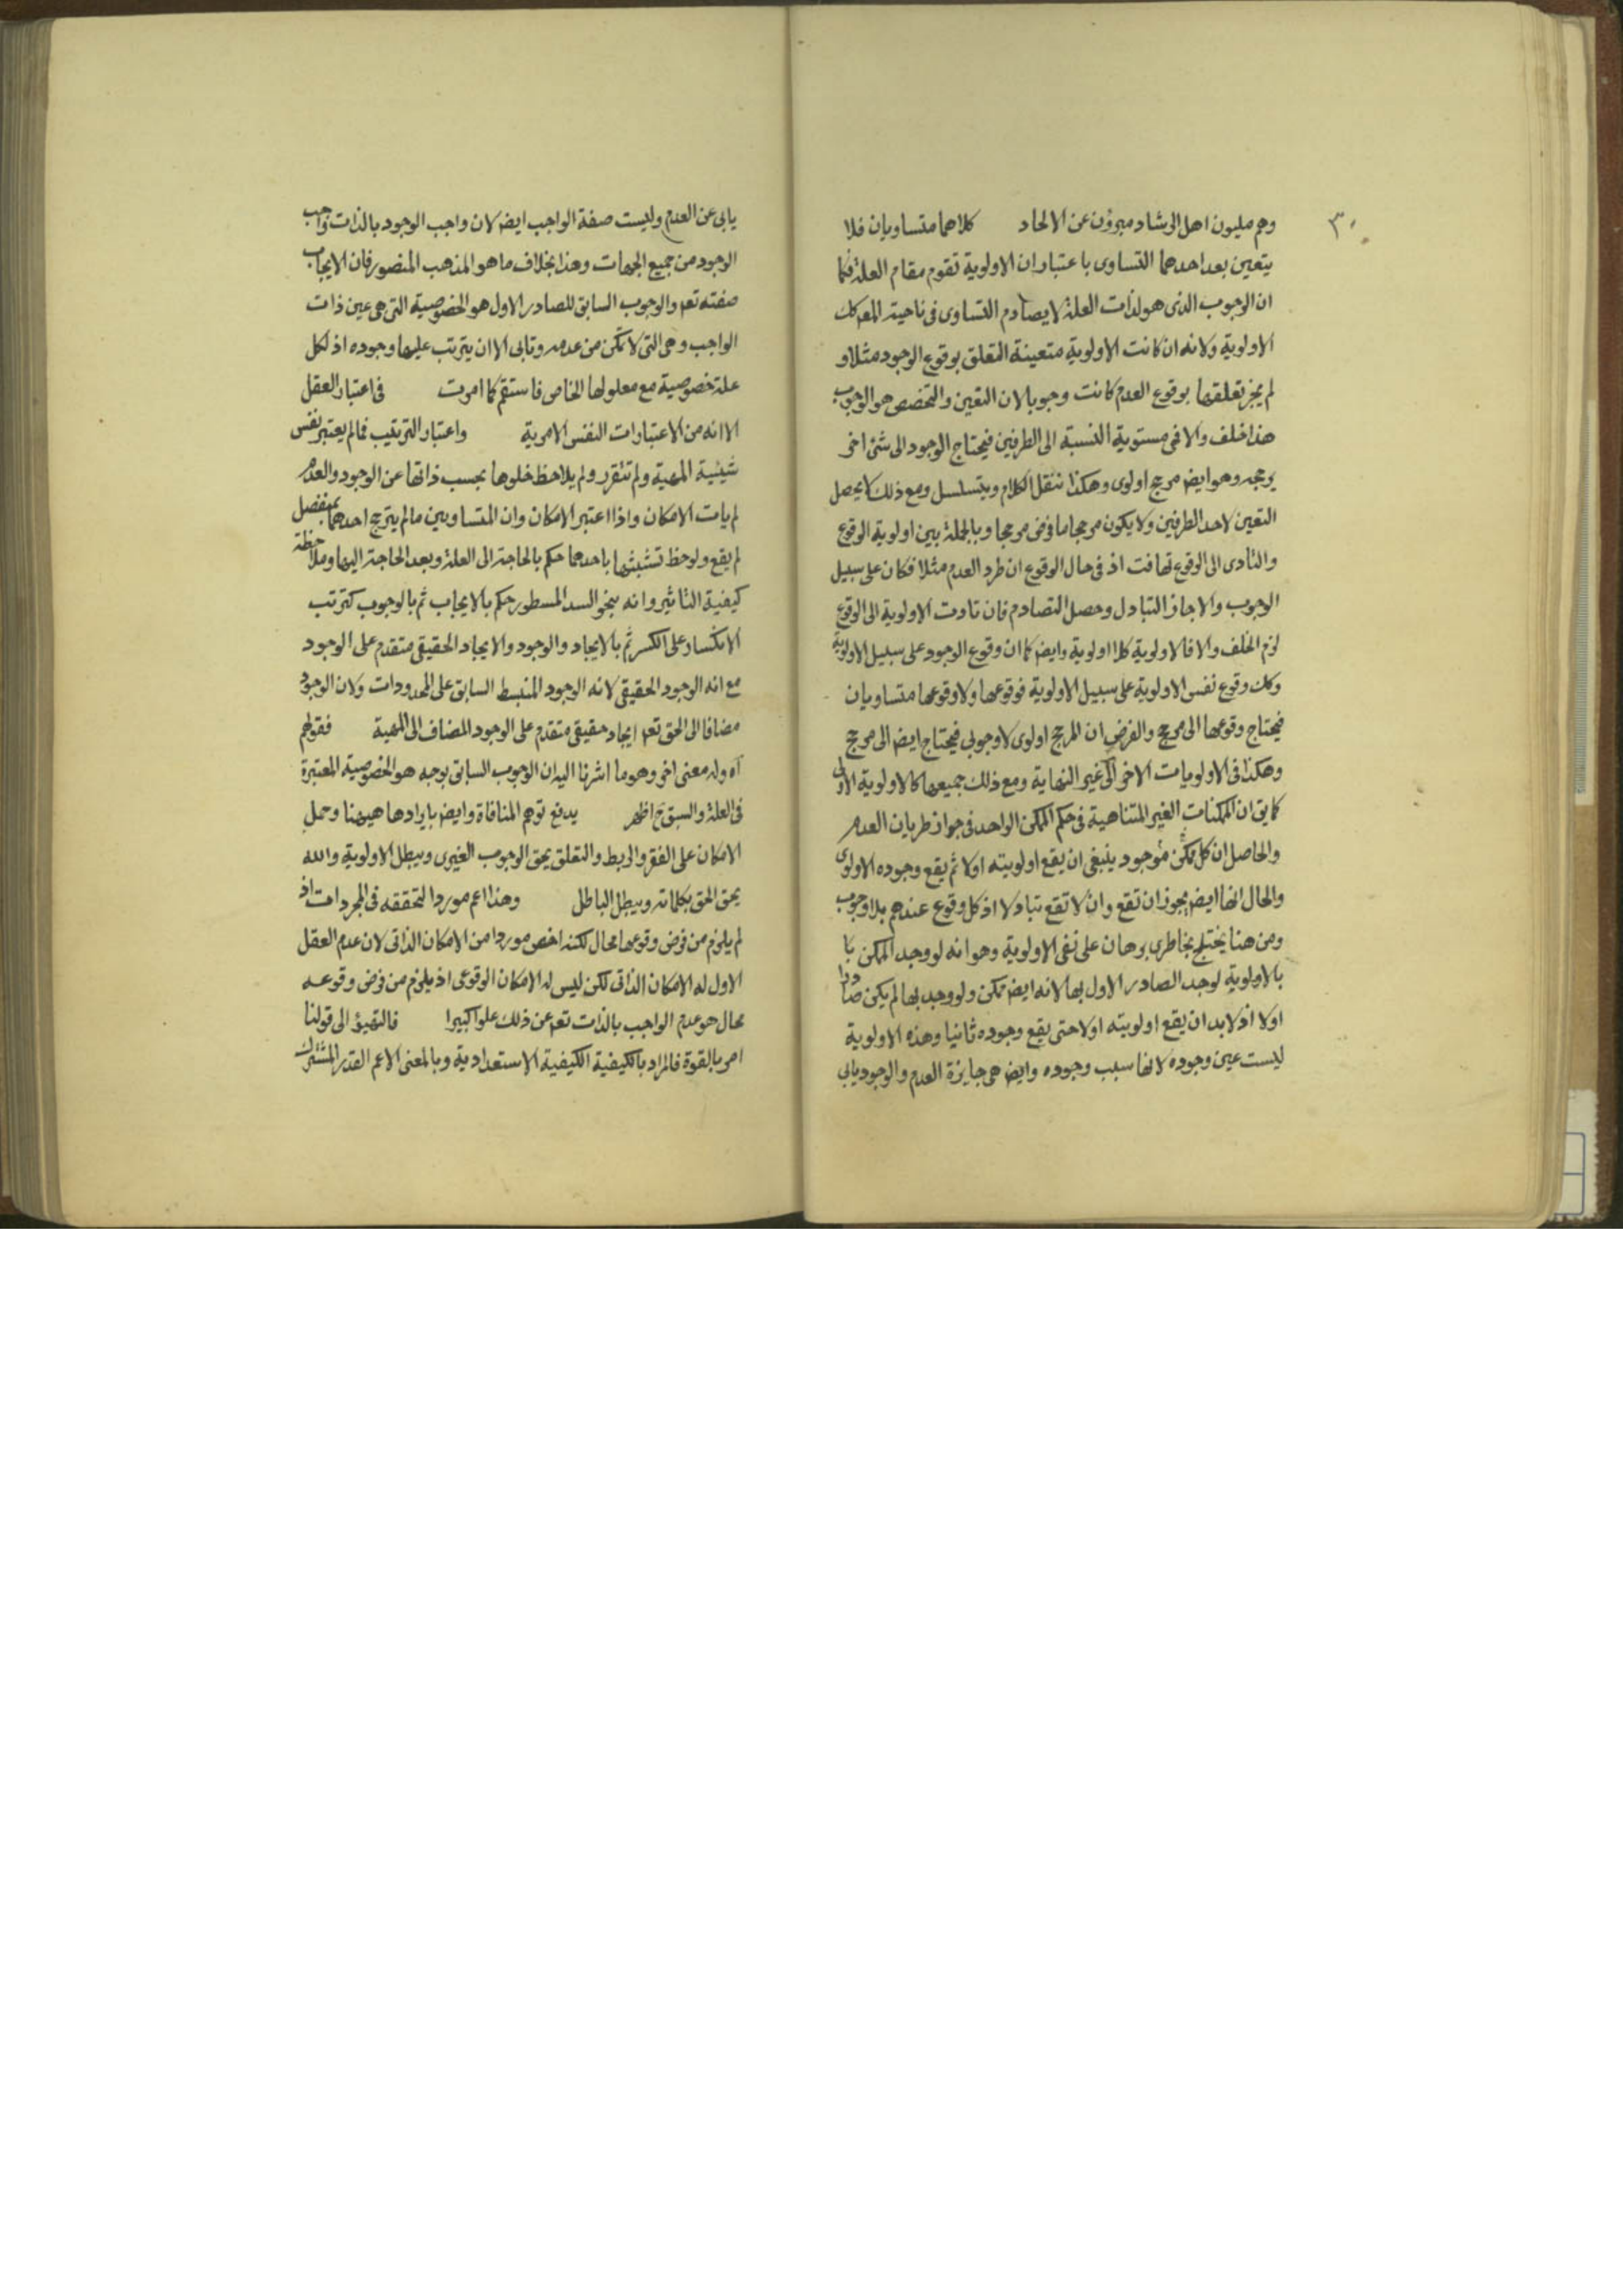 ٣٠
وهم مليون اهل الرشاد مبرؤن عن الالحاد كلاهما متساويان فلا
يتعين بعد احدهما التساوى باعتبار ان الاولوية تقوم مقام العلة فكما
ان الوجوب الذى هو لذات العلة لا يصادم التساوى فى ناحية المعـ كك
الاولوية ولانه ان كانت الاولوية متعينة التعلق بوقوع الوجود مثلا و
لم يجز تعلقها بوقوع العدم كانت وجوبا لان التعين والتخصص هو الوجوب
هذا خلف والا فى مستوية النسبة الى الطرفين فيحتاج الوجود الى شئ اخر
يرجحه وهو ايضا مرجح اولوى وهكذا ننقل الكلام ويتسلسل ومع ذلك لا يحصل
التعين لاحد الطرفين ولا يكون مرجحا ما فرض مرجحا وبالجملة بين اولوية الوقوع
والتادى الى الوقوع تهافت اذ فى حال الوقوع ان طرد العدم مثلا فكان على سبيل
الوجوب والا جاز التبادل وحصل التصادم فان تادت الاولوية الى الوقوع
لزم الخلف والا فالاولوية كلا اولوية وايضا كما ان وقوع الوجود على سبيل الاولوية
وكك وقوع نفس الاولوية على سبيل الاولوية فوقوعها ولا وقوعها متساويان
فيحتاج وقوعها الى مرجح والفرض ان المرجح اولوى لا وجوبى فيحتاج ايضا الى مرجح
وهكذا فى الاولويات الاخر الى غير النهاية ومع ذلك جميعها كالاولوية الاولى
كما يق ان الممكنات الغير المتناهية فى حكم الممكن الواحد فى جواز طريان العدم
والحاصل ان كل ممكن موجود ينبغى ان يقع اولويته اولا ثم يقع وجوده الاولوى
والحال انها ايضا يجوز ان تقع وان لا تقع تبادلا اذ كل وقوع عندهم بلا وجوب
ومن هنا يختلج بخاطرى برهان على نفى الاولوية وهو انه لو وجد الممكن با
بالاولوية لوجد الصادر الاول بها لانه ايضا ممكن ولو وجد بها لم يكن صادرا
اولا اذ لابد ان يقع اولويته اولا حتى يقع وجوده ثانيا وهذه الاولوية
ليست عين وجوده لانها سبب وجوده وايضا هى جايزة العدم والوجود يابى
يابى عن العدم وليست صفة الواجب ايضا لان واجب الوجود بالذات واجب
الوجود من جميع الجهات وهذا بخلاف ما هو المذهب المنصور فان الايجاب
صفته تعـ والوجوب السابق للصادر الاول هو الخصوصية التى هى عين ذات
الواجب وهى التى لا تمكن من عدمه وتابى الا ان يترتب عليها وجوده اذ لكل
علة خصوصية مع معلولها الخاص فاستقم كما امرت فى اعتبار العقل
الا انه من الاعتبارات النفس الامرية واعتبار الترتيب فما لم يعتبر نفس
شيئية المهية ولم تتقرر ولم يلاحظ خلوها بحسب ذاتها عن الوجود والعدم
لم يات الامكان واذا اعتبر الامكان وان المتساويين ما لم يترجح احدهما بمنفصل
لم يقع ولوحظ تشبثها باحدهما حكم بالحاجة الى العلة وبعد الحاجة اليها وملاحظة
كيفية التاثير وانه بنحو السد المسطور حكم بالايجاب ثم بالوجوب كترتب
الانكسار على الكسر ثم بالايجاد والوجود والايجاد الحقيقى متقدم على الوجود
مع انه الوجود الحقيقى لانه الوجود المنبسط السابق على المحدودات ولان الوجود
مضافا الى الحق تعـ ايجاد حقيقى متقدم على الوجود المضاف الى المهية فقولهم
آه وله معنى اخر وهو ما اشرنا اليه ان الوجوب السابق بوجه هو الخصوصية المعتبرة
فى العلة والسبق ح اظهر يدفع توهم المنافاة وايضا بايرادها هيهنا وحمل
الامكان على الفقر والربط والتعلق يحق الوجوب الغيرى ويبطل الاولوية والله
يحق الحق بكلماته ويبطل الباطل وهذا اعم موردا لتحققه فى المجردات اذ
لم يلزم من فرض وقوعها محال لكنه اخص موردا من الامكان الذاتى لان عدم العقل
الاول له الامكان الذاتى لكن ليس له الامكان الوقوعى اذ يلزم من فرض وقوعه
محال هو عدم الواجب بالذات تعـ عن ذلك علوا كبيرا فالتهيؤ الى قولنا
امر بالقوة فالمراد بالكيفية الكيفية الاستعدادية وبالمعنى الاعم القدر المشترك